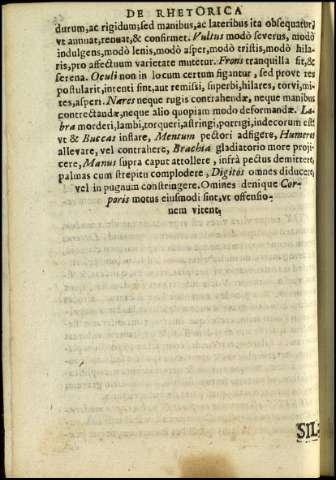 DE RHETORICA
durum, ac rigidum, sed manibus, ac lateribus ita obsequatur,
vt annuat, renuat, & confirmet. Vultus modò severus, modò
indulgens, modò lenis, modò asper, modò tristis, modò hila-
ris, pro affectuum varietate mutetur. Frons tranquilla sit, &
serena. Oculi non in locum certum figantur, sed prout res
postularit, intenti sint, aut remissi, superbi, hilares, torvi, mi-
tes, asperi. Nares neque rugis contrahendæ, neque manibus
contrectandæ, neque alio quopiam modo deformandæ. La-
bra morderi, lambi, torqueri, astringi, porrigi, indecorum est
vt & Buccas inflare, Mentum pectori adfigere, Humeros
allevare, vel contrahere, Brachia gladiatorio more proji-
cere, Manus supra caput attollere, infrà pectus demittere,
palmas cum strepitu complodere, Digitos omnes diducere,
vel in pugnum constringere. Omines denique Cor-
poris motus eiusmodi sint, vt offensio-
nem vitent,
SIL-